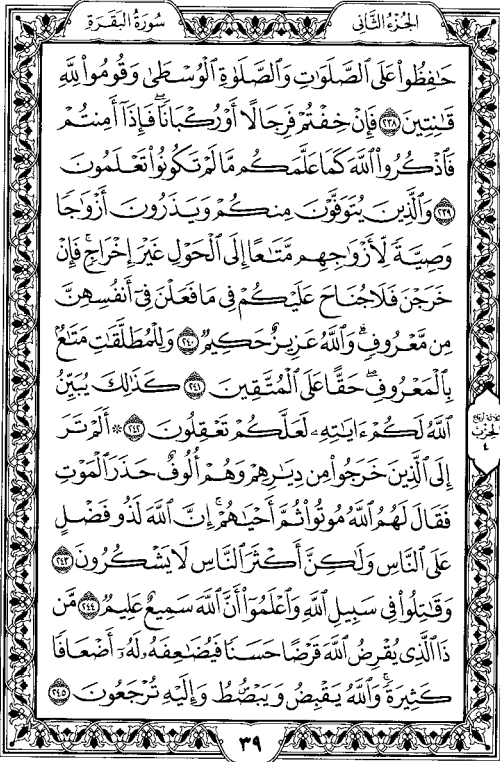 الجزء الثاني
سورة البقرة
حَٰفِظُوا۟ عَلَى ٱلصَّلَوَٰتِ وَٱلصَّلَوٰةِ ٱلْوُسْطَىٰ وَقُومُوا۟ لِلَّهِ
قَٰنِتِينَ ٢٣٨ فَإِنْ خِفْتُمْ فَرِجَالًا أَوْ رُكْبَانًا ۖ فَإِذَآ أَمِنتُمْ
فَٱذْكُرُوا۟ ٱللَّهَ كَمَا عَلَّمَكُم مَّا لَمْ تَكُونُوا۟ تَعْلَمُونَ
٢٣٩ وَٱلَّذِينَ يُتَوَفَّوْنَ مِنكُمْ وَيَذَرُونَ أَزْوَٰجًا
وَصِيَّةً لِّأَزْوَٰجِهِم مَّتَٰعًا إِلَى ٱلْحَوْلِ غَيْرَ إِخْرَاجٍ ۚ فَإِنْ
خَرَجْنَ فَلَا جُنَاحَ عَلَيْكُمْ فِى مَا فَعَلْنَ فِىٓ أَنفُسِهِنَّ
مِن مَّعْرُوفٍ ۗ وَٱللَّهُ عَزِيزٌ حَكِيمٌ ٢٤٠ وَلِلْمُطَلَّقَٰتِ مَتَٰعٌۢ
بِٱلْمَعْرُوفِ ۖ حَقًّا عَلَى ٱلْمُتَّقِينَ ٢٤١ كَذَٰلِكَ يُبَيِّنُ
ٱللَّهُ لَكُمْ ءَايَٰتِهِۦ لَعَلَّكُمْ تَعْقِلُونَ ٢٤٢ ۞ أَلَمْ تَرَ
إِلَى ٱلَّذِينَ خَرَجُوا۟ مِن دِيَٰرِهِمْ وَهُمْ أُلُوفٌ حَذَرَ ٱلْمَوْتِ
فَقَالَ لَهُمُ ٱللَّهُ مُوتُوا۟ ثُمَّ أَحْيَٰهُمْ ۚ إِنَّ ٱللَّهَ لَذُو فَضْلٍ
عَلَى ٱلنَّاسِ وَلَٰكِنَّ أَكْثَرَ ٱلنَّاسِ لَا يَشْكُرُونَ ٢٤٣
وَقَٰتِلُوا۟ فِى سَبِيلِ ٱللَّهِ وَٱعْلَمُوٓا۟ أَنَّ ٱللَّهَ سَمِيعٌ عَلِيمٌ ٢٤٤ مَّن
ذَا ٱلَّذِى يُقْرِضُ ٱللَّهَ قَرْضًا حَسَنًا فَيُضَٰعِفَهُۥ لَهُۥٓ أَضْعَافًا
كَثِيرَةً ۚ وَٱللَّهُ يَقْبِضُ وَيَبْصُۜطُ وَإِلَيْهِ تُرْجَعُونَ ٢٤٥
الحزب
٤
٣٩